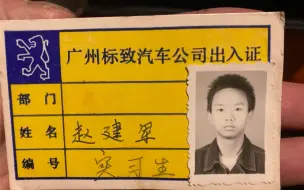 广州标致汽车公司出入证
部门
姓名 赵建军
编号 实习生